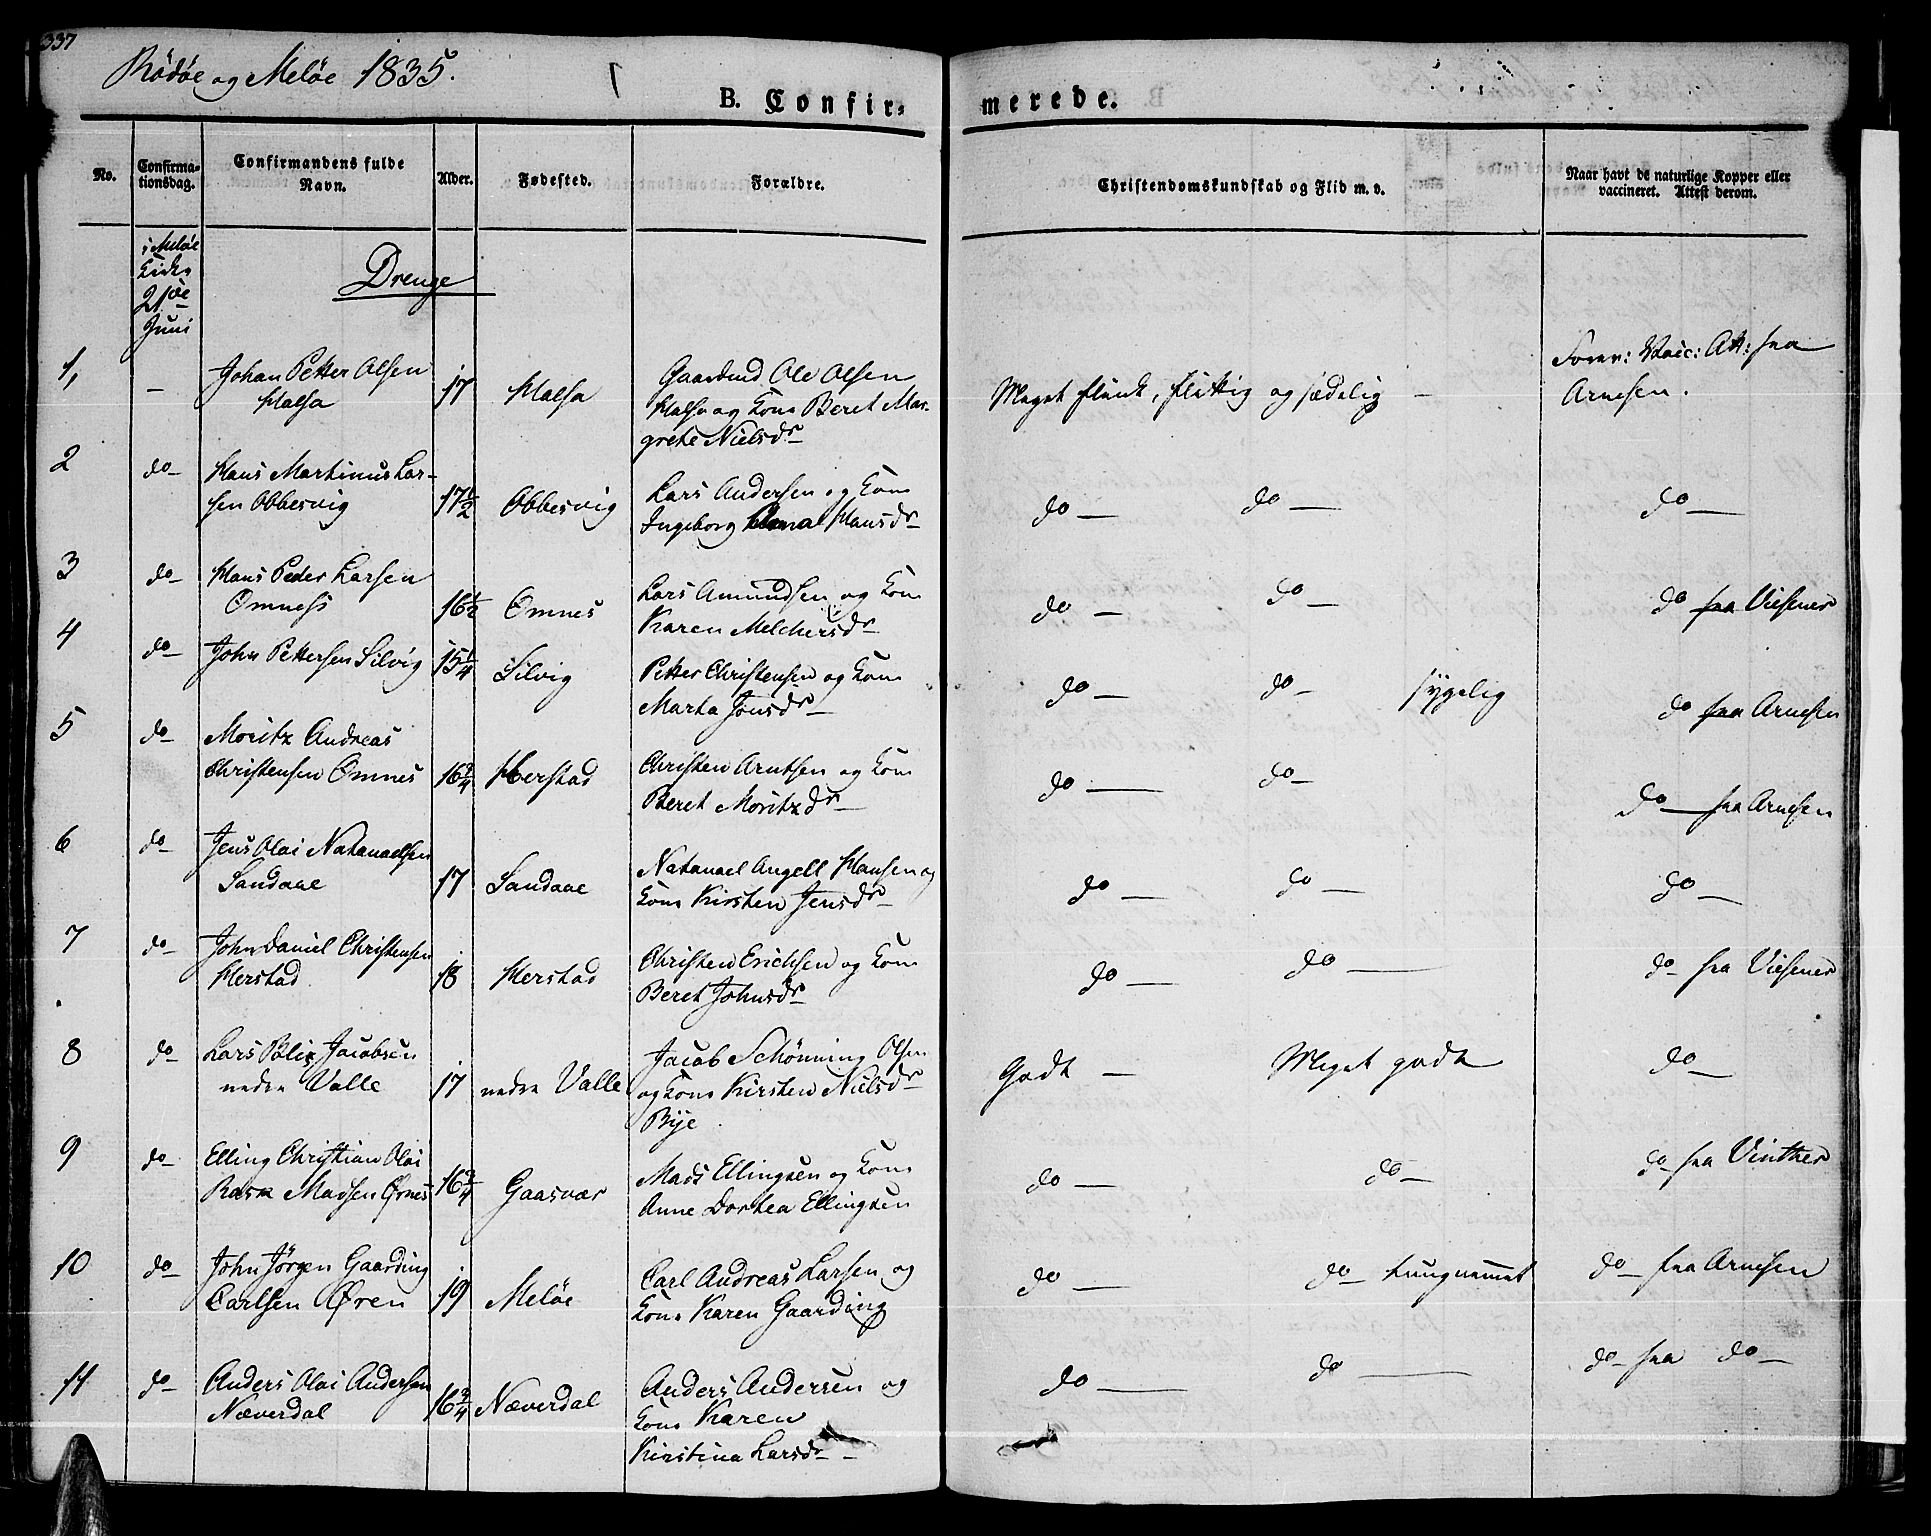 337
Rödöe og Melöe 1835.
B. Confir-
merede.
No.
Confirma-
tionsdag.
Confirmandens fulde
Navn.
Alder.
Fødested.
Forældre.
Christendomskundskab og Flid m. v.
Naar havt de naturlige Kopper eller
vaccineret. Attest derom.
i Melöe
Kirke
21de
Juni
Drenge
1, – Johan Petter Olsen
Halsa
17 Halsa
Gaardmd Ole Olsen
Halsa og Kone Beret Mar-
grete Nielsdr
Meget flink, flittig og sædelig –
Forev: Vacc: Att: fra
Arnesen.
2 do Hans Martinus Lar-
sen Obbesvig
17½ Obbesvig
Lars Andersen og Kone
Ingeborg Hansdr
do – do – do –
3 do Hans Peder Larsen
Omness
16½ Omnes
Lars Amundsen og Kone
Karen Melchersdr
do – do – do fra Viesener
4 do John Pettersen Silvig 15¼ Silvig
Petter Christensen og Kone
Marta Jonsdr
do – do – sygelig do fra Arnesen
5 do Moritz Andreas
Christensen Omnes
16¾ Herstad
Christen Arntsen og Kone
Beret Moritzdr
do – do – do – fra Arnesen
6 do Jens Olai Natanaelsen
Sandaae
17 Sandaae
Natanael Angell Hansen og
Kone Kirsten Jensdr
do – do – do –
7 do John Daniel Christensen
Herstad
18 Herstad
Christen Erichsen og Kone
Beret Johnsdr
do – do – do fra Viesener
8 do Lars Blix Jacobsen
nedre Valle
17 nedre Valle
Jacob Schönning Olsen
og Kone Kirsten Nielsdr
Bye
Godt – Meget godt do –
9 do Elling Christian Olai
Rask Madsen Ørnes
16¾ Gaasvær
Mads Ellingsen og Kone
Anne Dortea Ellingsen
do – do – do fra Vinther
10 do John Jörgen Gaarding
Carlsen Øren
19 Melöe
Carl Andreas Larsen og
Kone Karen Gaarding
do – do tungnemmet do – fra Arnesen
11 do Anders Olai Andersen
Næverdal
16¾ Næverdal
Anders Andersen og
Kone Karen
Kirstina Larsdr –
do – do – do fra do –